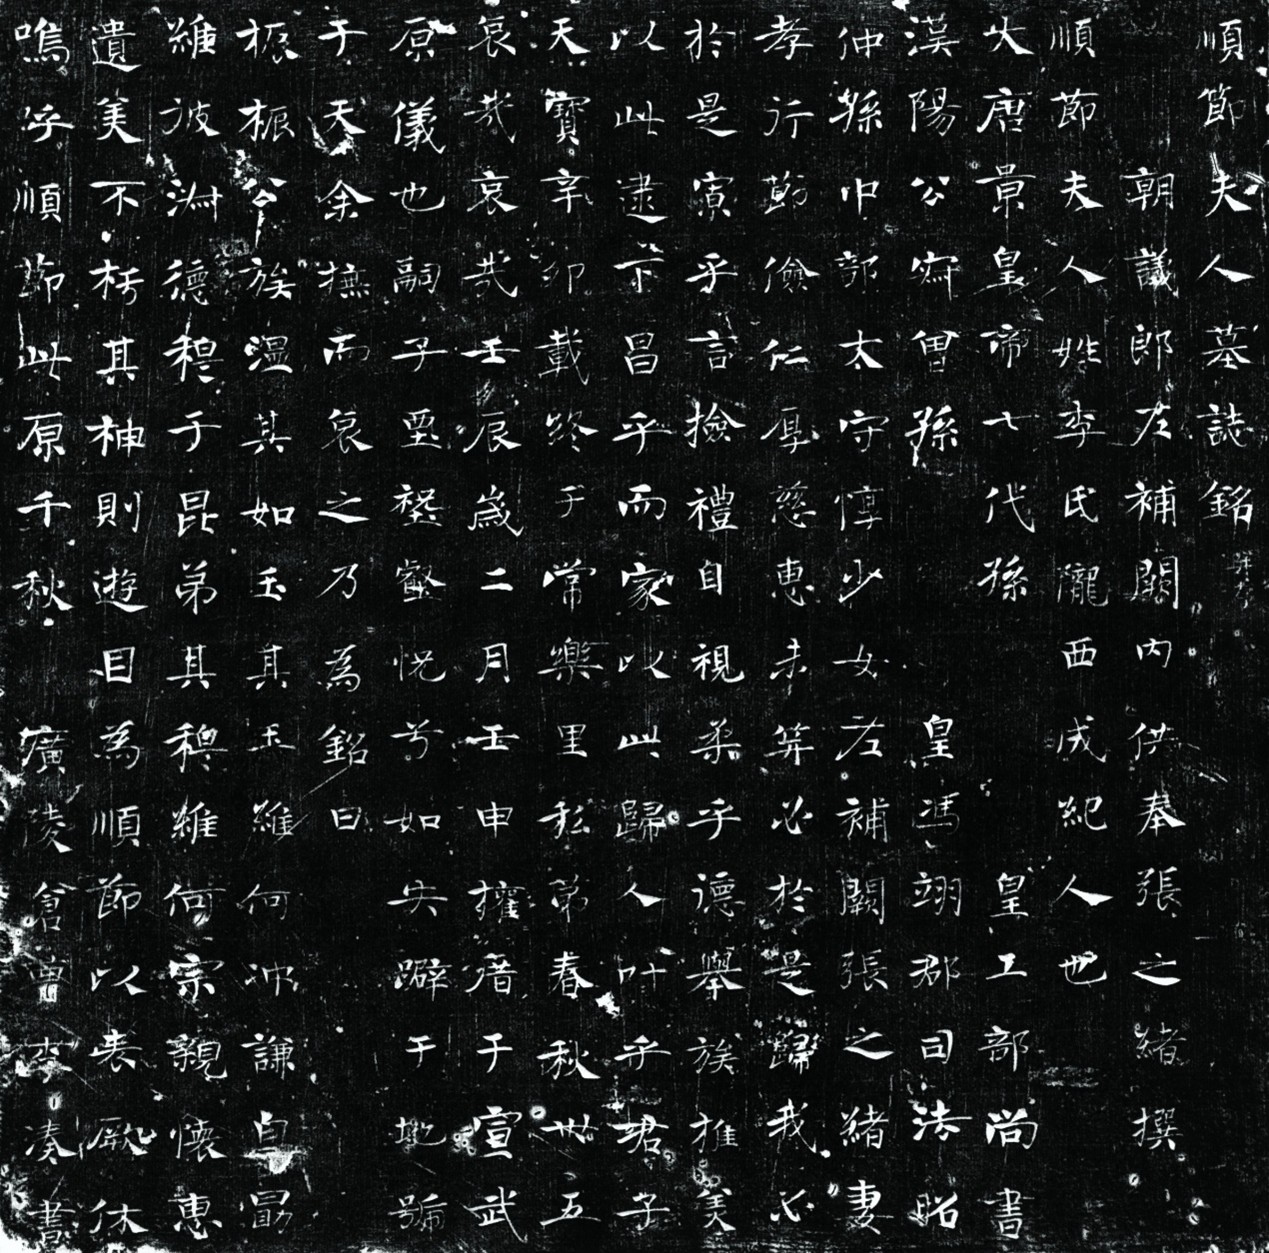 順節夫人墓誌銘 并序
朝議郎左補闕內供奉張之緒撰
順節夫人姓李氏隴西成紀人也
大唐景皇帝七代孫 皇工部尚書
漢陽公曾孫 皇馮翊郡司法昭
仲孫中部太守惇少女左補闕張之緒妻
孝行節儉仁厚慈惠未笄必於是歸我必
於是寅乎言撿禮自視柔乎德舉族推美
以此逮下昌乎而家以此歸人叶乎君子
天寶辛卯載終于常樂里私第春秋卅五
哀哉哀哉壬辰歲二月壬申權厝于宣武
原儀也嗣子壑怳兮如失躃于地號
于天余撫而哀之乃為銘曰
振振公族溫其如玉其玉維何沖謙自勖
維彼淑德穆于昆弟其穆維何宗親懷惠
遺美不朽其神則遊目為順節以表厥休
嗚呼順節此原千秋 廣陵倉曹李湊書